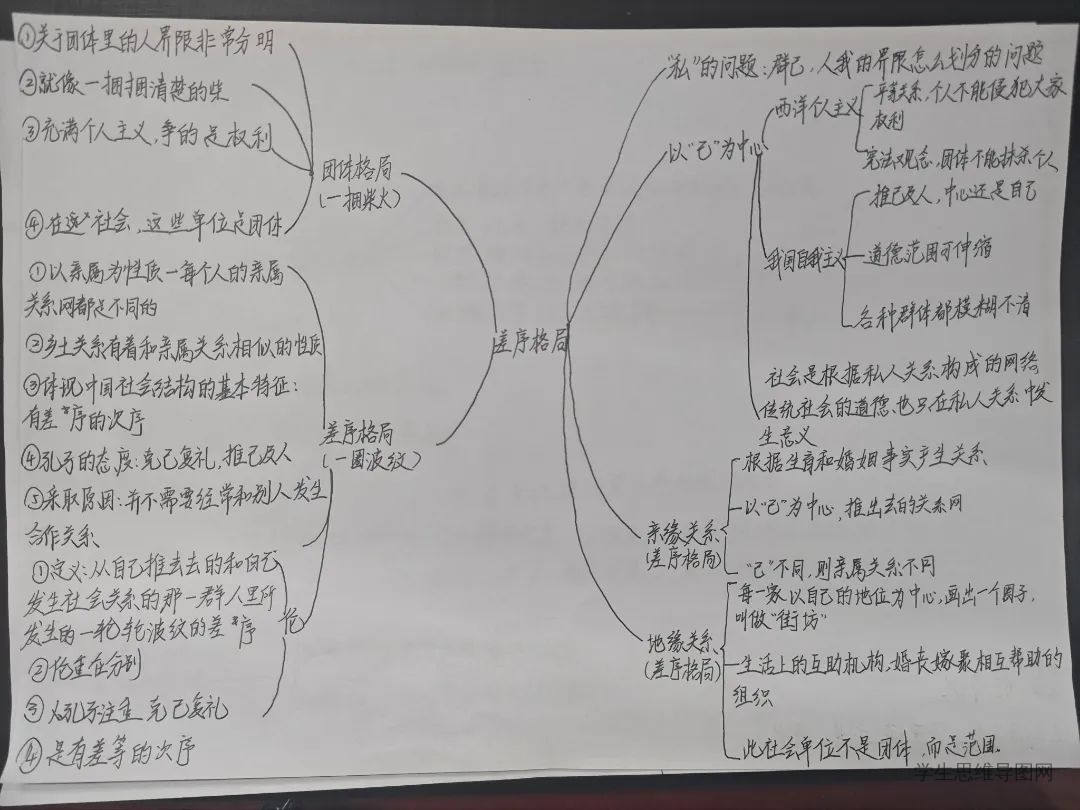 ①关于团体里的人界限非常分明
②就像一捆捆清楚的柴
③充满个人主义,争的是权利
团体格局
(一捆柴火)
④在这社会,这些单位是团体
①以亲属为性质一每个人的亲属
关系网都是不同的
②乡土关系有着和亲属关系相似的性质
③体现中国社会结构的基本特征:
有差等序的次序
差序格局
(一圈波纹)
④孔子的态度:克己复礼,推己及人
⑤采取原因:并不需要经常和别人发生
合作关系
①定义:从自己推去去的和自己
发生社会关系的那一群人里所
发生的一轮轮波纹的差等序
伦
②伦重在分别
③孔子注重克己复礼
④是有差等的次序
差序格局
“私”的问题:群己,人我的界限怎么划分的问题
以“己”为中心
西洋个人主义
平等关系,个人不能侵犯大家
权利
宪法观念,团体不能抹杀个人
我国自我主义
推己及人,中心还是自己
道德范围可伸缩
各种群体都模糊不清
社会是根据私人关系构成的网络
传统社会的道德也只在私人关系中发
生意义
亲缘关系
(差序格局)
根据生育和婚姻事实产生关系
以“己”为中心,推出去的关系网
“己”不同,则亲属关系不同
地缘关系
(差序格局)
每一家以自己的地位为中心,画出一个圈子,
叫做“街坊”
生活上的互助机构,婚丧嫁聚相互帮助的
组织
此社会单位不是团体,而是范围.
学生思维导图网